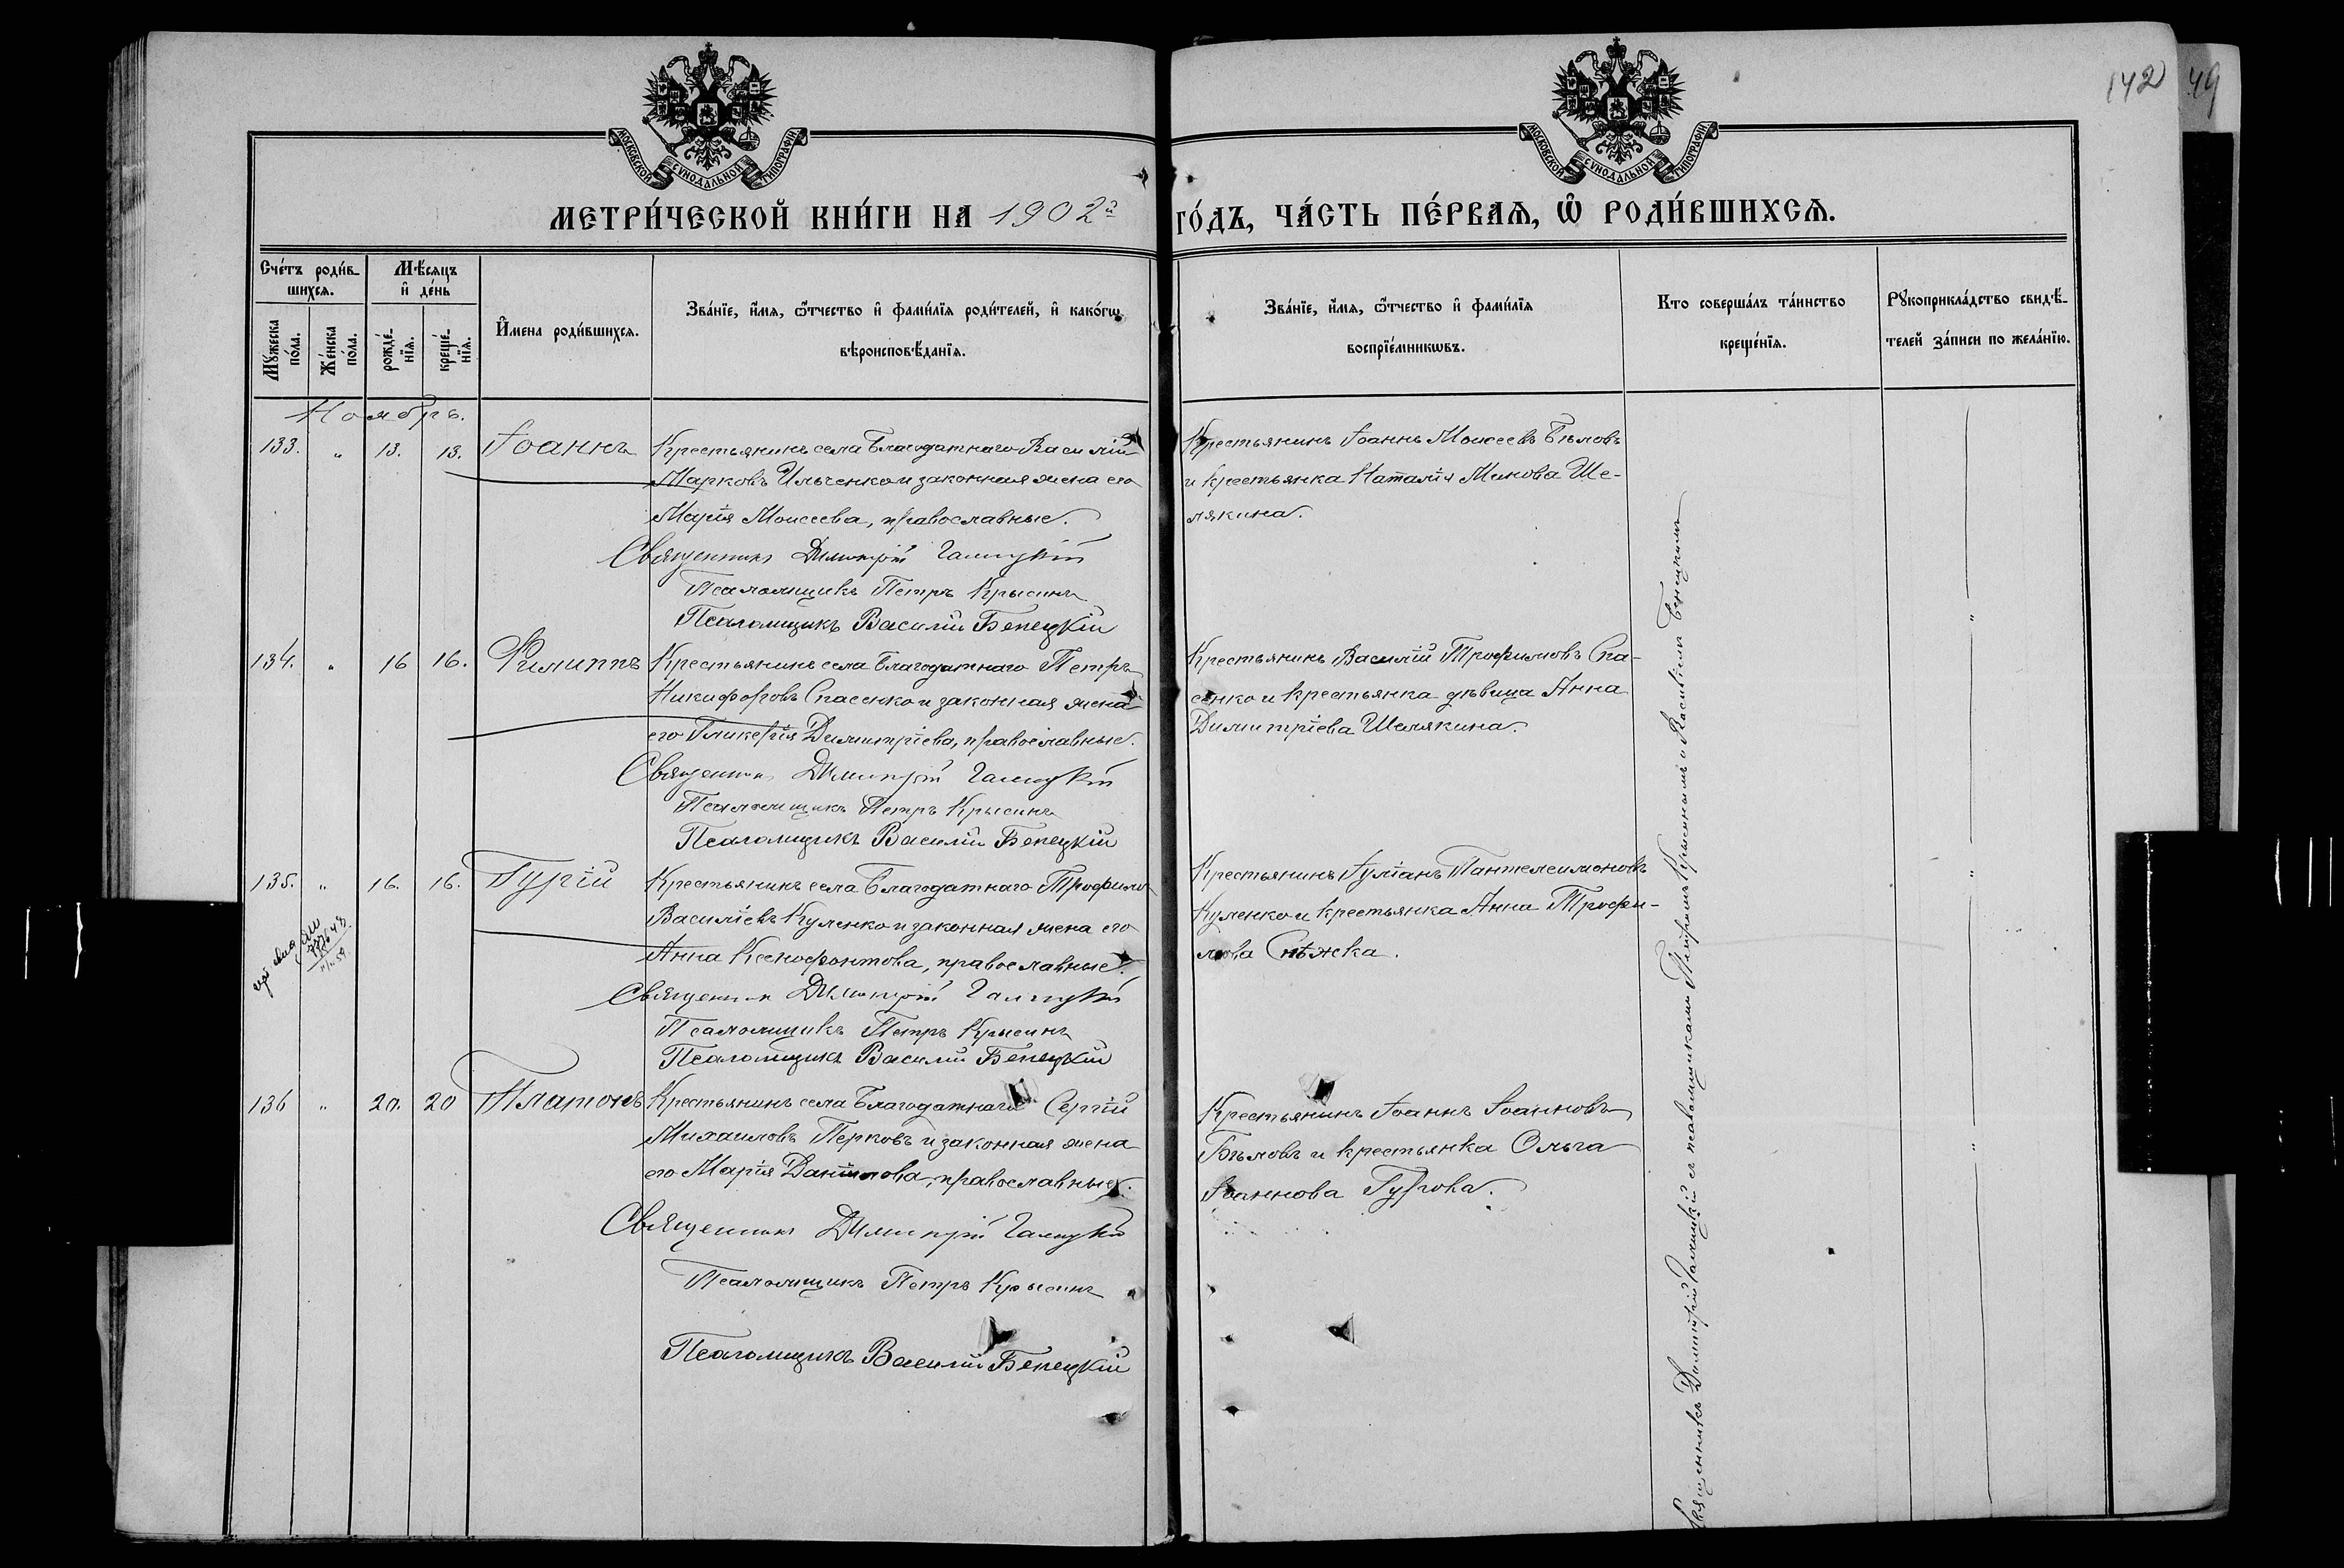 142 49
МОСКОВСКОЙ СѴНОДАЛЬНОЙ ТИПОГРАФІИ
МОСКОВСКОЙ СѴНОДАЛЬНОЙ ТИПОГРАФІИ
МЕТРИ́ЧЕСКОЙ КНИ́ГИ НА 1902й ГО́ДЪ, ЧА́СТЬ ПЕ́РВАѦ, Ѡ РОДИ́ВШИХСѦ.
Сче́тъ роди́в-
шихсѧ.
Мꙋжеска
по́ла.
Же́нска
по́ла.
Мѣ́сѧцъ
и҆ де́нь
рожде́-
нїѧ.
креще́-
нїѧ.
И҆́мена роди́вшихсѧ.
Зва́нїе, и҆́мѧ, ѻ҆́тчество и҆ фами́лїѧ роди́телей, и҆ како́гѡ
вѣроисповѣ́данїѧ.
Зва́нїе, и҆́мѧ, ѻ҆́тчество и҆ фами́лїѧ
воспрїе́мникѡвъ.
Кто соверша́лъ та́инство
креще́нїѧ.
Рꙋкоприкла́дство свидѣ́-
телей за́писи по жела́нїю.
Ноябрь.
133. " 13. 13. Іоаннъ
Крестьянинъ села Благодатнаго Василій
Марковъ Ильченко и законная жена его
Марія Моисеева, православные.
Священникъ Димитрій Галицкій
Псаломщикъ Петръ Крысинъ
Псаломщикъ Василій Бенецкій
Крестьянинъ Іоаннъ Моисеевъ Бѣловъ
и крестьянка Наталія Минова Ше-
лякина.
134. " 16 16. Филиппъ
Крестьянинъ села Благодатнаго Петръ
Никифоровъ Спасенко и законная жена
его Гликерія Димитріева, православные.
Священникъ Димитрій Галицкій
Псаломщикъ Петръ Крысинъ
Псаломщикъ Василій Бенецкій
Крестьянинъ Василій Трофимовъ Спа-
сенко и крестьянка дѣвица Анна
Димитріева Шелякина.
"
135. " 16. 16. Гурій
Крестьянинъ села Благодатнаго Трофимъ
Василіевъ Куленко и законная жена его
Анна Ксенофонтова, православные.
Священникъ Димитрій Галицкій
Псаломщикъ Петръ Крысинъ
Псаломщикъ Василій Бенецкій
Крестьянинъ Іуліанъ Пантелеимоновъ
Куленко и крестьянка Анна Трофи-
мова Снѣжка.
"
136 " 20. 20 Платонъ
Крестьянинъ села Благодатнаго Сергій
Михаиловъ Перковъ и законная жена
его Марія Даніилова, православные.
Священникъ Димитрій Галицкій
Псаломщикъ Петръ Крысинъ
Псаломщикъ Василій Бенецкій
Крестьянинъ Іоаннъ Іоанновъ
Бѣловъ и крестьянка Ольга
Іоаннова Гурова.
"
Священникъ Димитрій Галицкій съ псаломщиками Петромъ Крысинымъ и Василіемъ Бенецкимъ